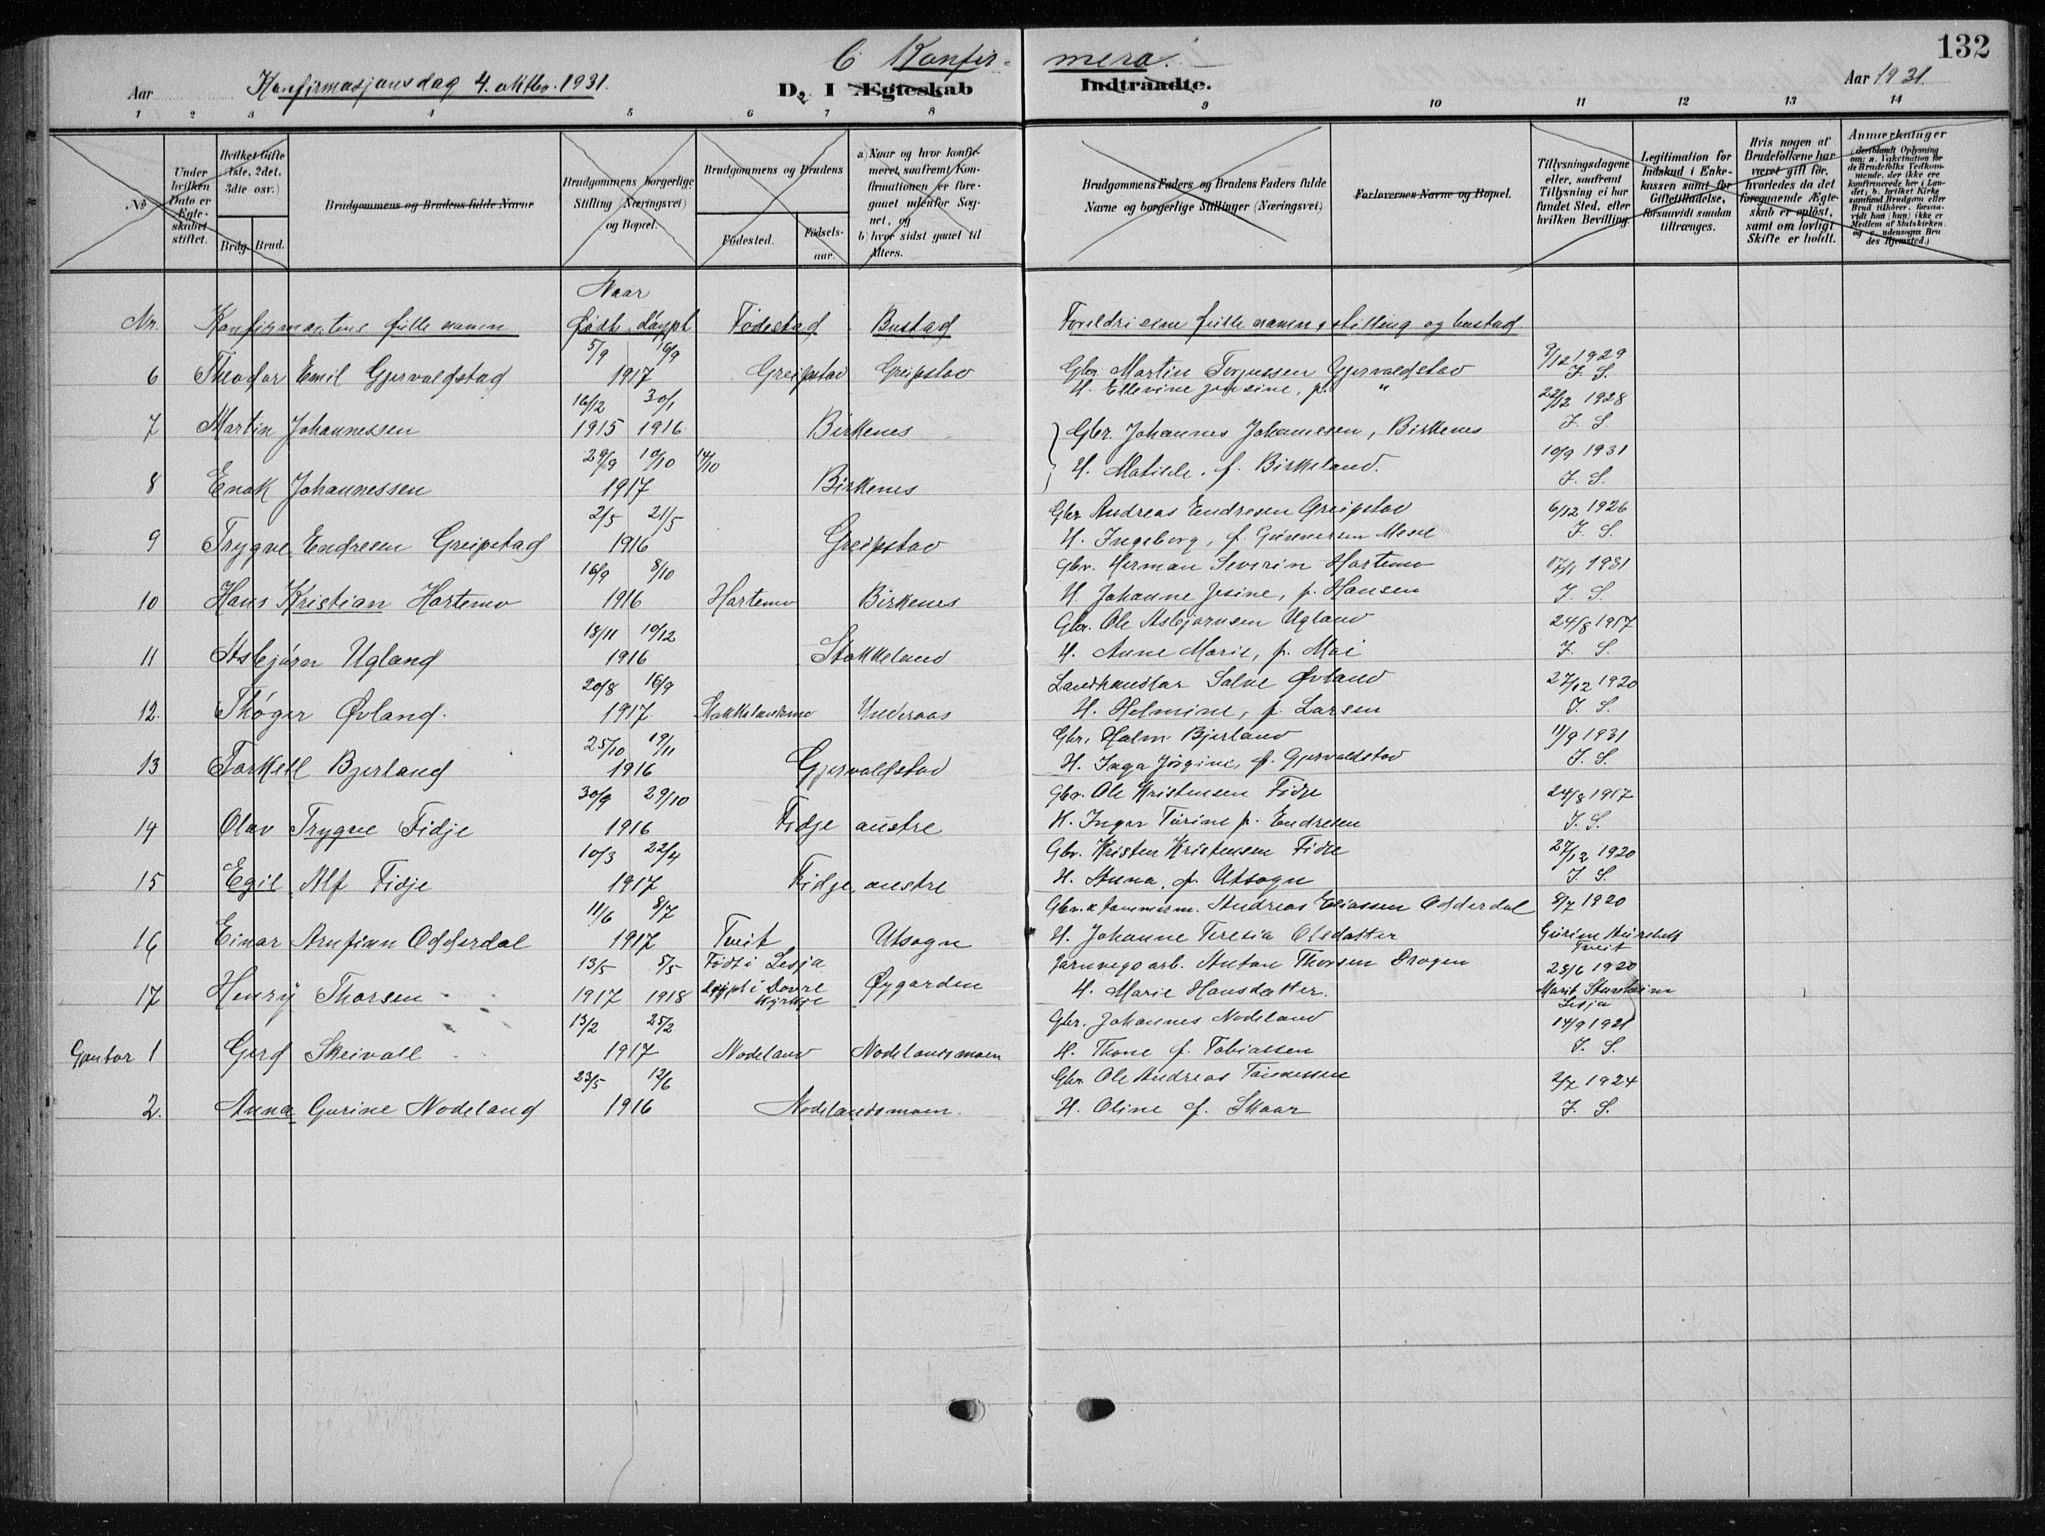 132
C Konfir-
mera.
Konfirmasjonsdag 4. oktbr. 1931.
Aar
D. I Ægteskab
Indtraadte.
Aar 1931.
1 2 3 4 5 6 7 8 9 10 11 12 13 14
No.
Under hvilken Dato er Ægteskabet stiftet.
Hvilket Gifte (1ste, 2det, 3die osv.)
Brdg. Brud.
Brudgommens og Brudens fulde Navne
Brudgommens borgerlige Stilling (Næringsvei) og Bopæl.
Brudgommens og Brudens
Fødested. Fødselsaar.
a) Naar og hvor konfirmeret, saafremt Konfirmationen er foregaaet udenfor Sognet, og
b) hvor sidst gaaet til Alters.
Brudgommens Faders og Brudens Faders fulde Navne og borgerlige Stillinger (Næringsvei)
Forlovernes Navne og Bopæl.
Tillysningsdagene eller, saafremt Tillysning ei har fundet Sted, efter hvilken Bevilling
Legitimation for Indskud i Enkekassen samt for Giftetilladelse, forsaavidt saadan tiltrænges.
Hvis nogen af Brudefolkene har været gift før, hvorledes da det foregaaende Ægteskab er opløst, samt om lovligt Skifte er holdt.
Anmerkninger
Naar
Nr. Konfirmantens fulle namn Født døypt Fødestad Bustad Foreldri sine fulle namn, stilling og bustad
5/9 16/9 9/12 1929
6 Theodor Emil Gjervoldstad 1917 Greipstad Greipstad Gbr. Martin Torjussen Gjervoldstad J. S.
16/12 30/1 H. Ellevine Jonsine, f. " 22/12 1928
7 Martin Johannessen 1915 1916 Birkenes Gbr. Johannes Johannesen, Birkenes J. S
29/9 10/10 14/10 10/9 1931
8 Enok Johannessen 1917 Birkenes H. Matilde, f. Birkeland. J. S.
2/5 21/5 Gbr. Andreas Endresen Greipstad 6/12 1926
9 Trygve Endresen Greipstad 1916 Greipstad H. Ingeborg, f. Gunnersen Mosel J. S.
16/9 8/10 Gbr. Herman Severin Hortemo 17/1 1931
10 Hans Kristian Hortemo 1916 Hortemo Birkenes H. Johanne Jesine, f. Hansen J. S
18/11 10/12 Gbr. Ole Asbjørnsen Ugland 24/8 1917
11 Asbjørn Ugland 1916 Stokkeland H. Anne Marie, f. Moi J. S.
20/8 16/9 Landhandlar Salve Øvland 27/12 1920
12. Thøger Øvland. 1917. Stokkelandsmo Underaas H. Helmine, f. Larsen J. S.
25/10 19/11 Gbr. Halm Bjerland 11/9 1931
13 Torkell Bjerland 1916 Gjervoldstad H. Inga Jørgine, f. Gjervoldstad J. S.
30/9 29/10 Gbr. Ole Kristensen Fidje 24/8 1917
14 Olav Trygve Fidje 1916 Fidje austre H. Inger Turine f. Endresen J. S.
10/3 22/4 Gbr. Kristen Kristensen Fidje 27/12 1920
15 Egil Alf Fidje 1917 Fidje austre H. Anna, f. Utsogn J. S.
11/6 8/7 Gbr. & tømmerm. Andreas Eliassen Odderdal 8/7 1920
16 Einar Arnfinn Odderdal 1917 Tveit Utsogn H. Johanne Teresia Olsdatter Tveit
13/5 5/5 Født i Lesja Jarnvegsarb. Anton Thorsen Drogen 28/6 1920
17 Henry Thorsen 1917 1918 Døypt i Dovre kyrkje Øygarden H. Marie Hansdatter. Lesja
13/2 25/2 Gbr. Johannes Nodeland 14/9 1921
Gjentor 1 Gerd Skeivoll 1917 Nodeland Nodelandsmoen H. Thone f. Tobiassen J. S.
23/5 12/6 Gbr. Ole Andreas Tønnessen 2/7 1924
2. Anna Gurine Nodeland 1916 Nodelandsmoen. H. Oline f. Skaar J. S.